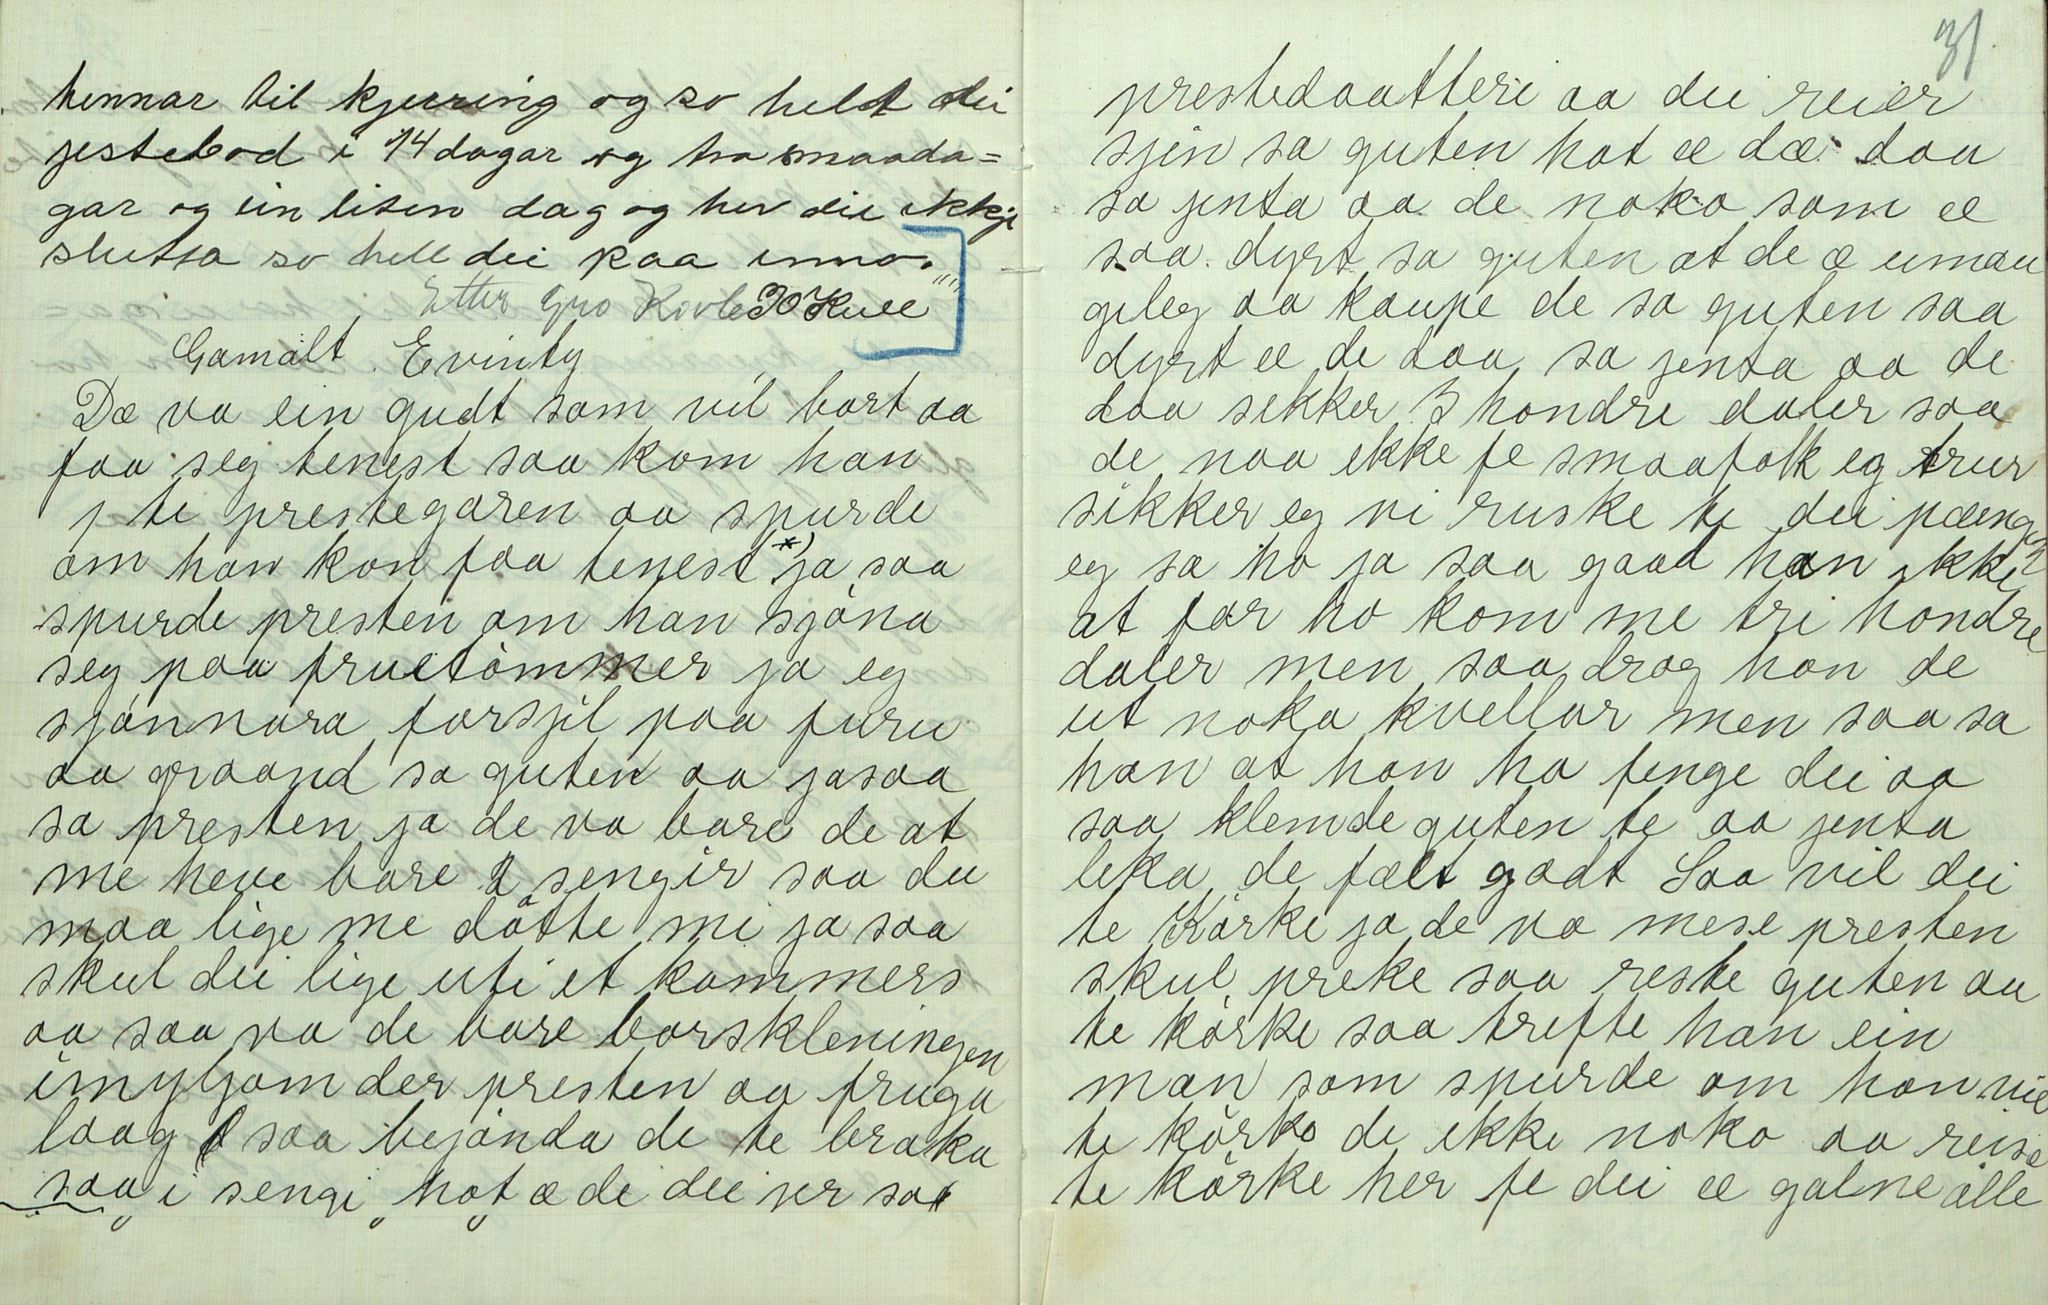 hennar til kjæring og so heldt dei
jestebod i 14 dagar og tra smaada=
gar og ein liten dag og hev dei ikkje
slutta so held dei paa enno."
Etter Gro Kovle TO Kvee
Gamalt Evinty
Dæ va ein gudt som vil bort aa
faa seg tenest saa kom han
te prestegaren aa spurde
om han kon faa tenest *) ja saa
spurde presten om han sjöna
seg paa fruetömmer ja eg
sjönnara forsjil paa furu
aa graand sa guten aa jasaa
sa presten ja de va bare de at
me heve bare 2 sengir saa du
maa lige me dötte mi ja saa
skul dei lige uti et kammers
aa saa va de bare borskleningen
imyljom der presten aa fruga
laag saa bejönda de te braka
saa i sengi hot æ de dei jer saa
31
prestedaatteri aa dei reier
sjin sa guten hot ee dæ daa
sa jenta aa de noko som ee
saa dyrt sa guten at de æ uman
geleg aa kaupe de sa guten saa
dyrt ee de daa sa jenta aa de
daa sekker 3 hondre daler saa
de naa ikke fe smaafolk eg trur
sikker eg vi ruske te dei pængen
eg sa ho ja saa gaad han ikkj
at far ho kom me tri hondre
daler men saa drog han de
ut noka kvellar men saa sa
han at han ha fenge dei aa
saa klemde guten te aa jenta
leka de fælt godt Saa vil dei
te Körke ja de va mese presten
skul preke saa reste guten aa
te körke saa trefte han ein
man som spurde om han vil
te körke de ikke noko aa reisa
te körke her fe dei ee galne alle